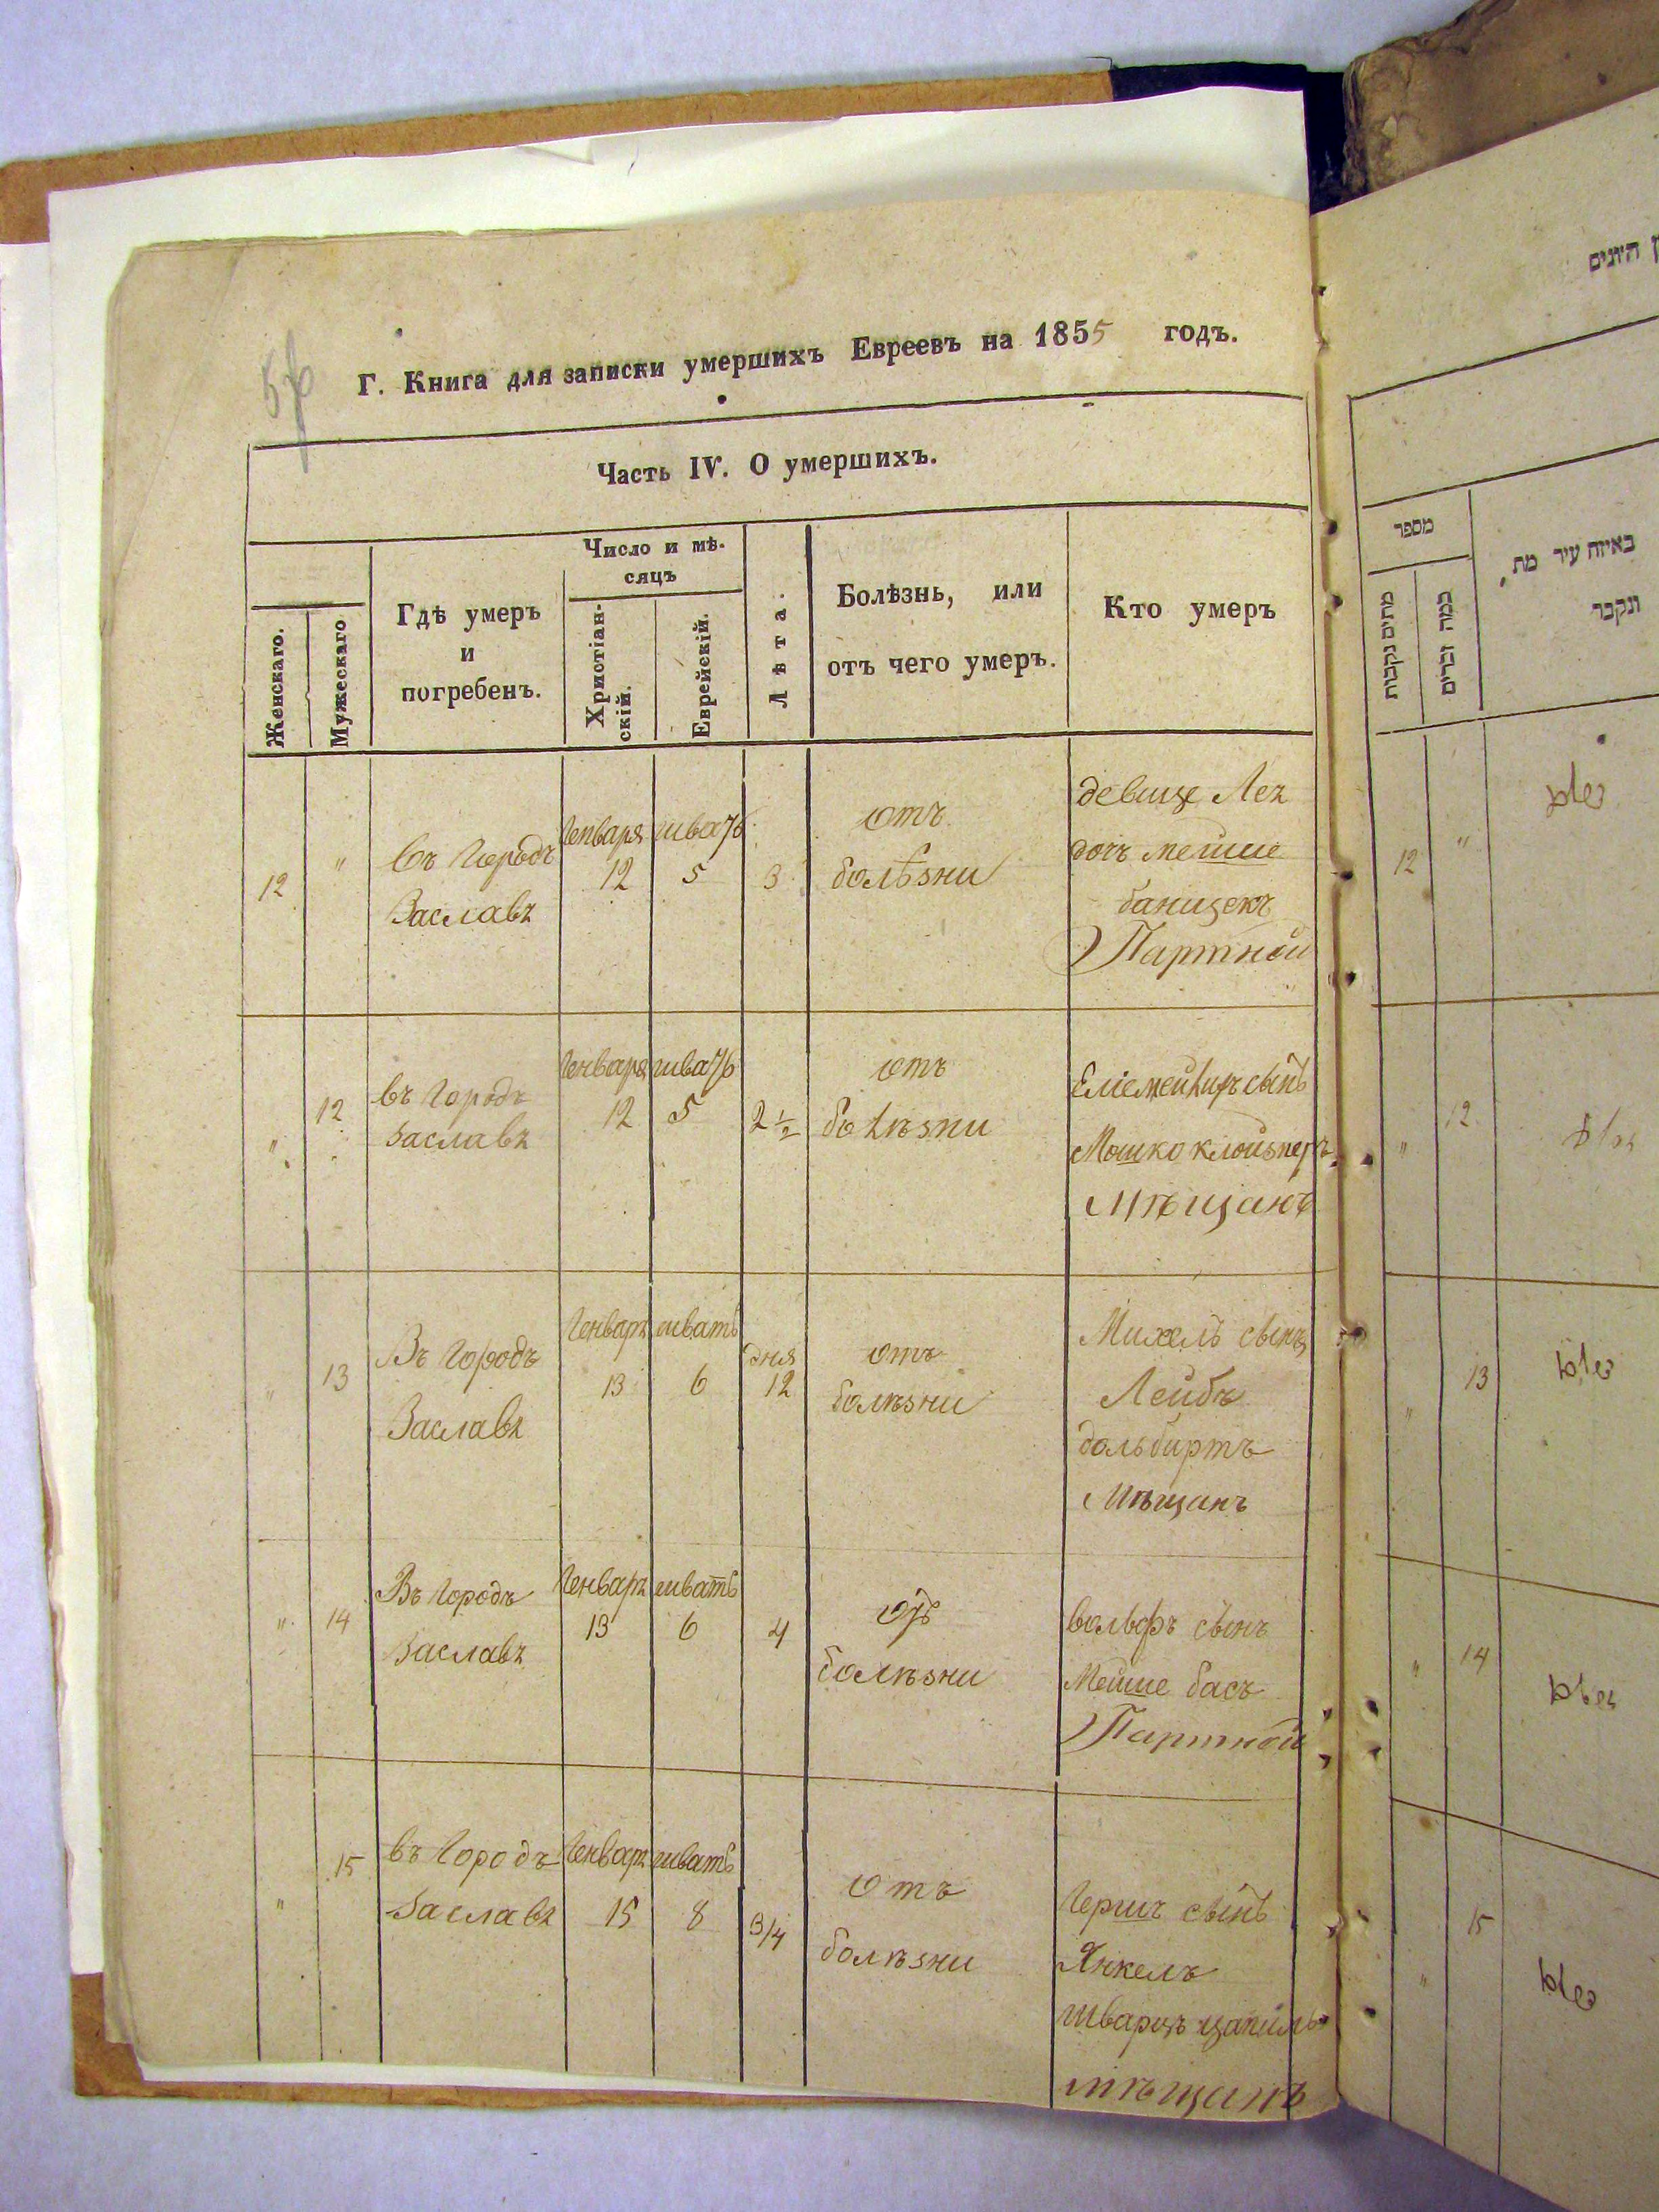 Г. Книга для записки умершихъ Евреевъ на 1855 годъ.
Часть IV. О умершихъ.
Женскаго.
Мужескаго
Гдѣ умеръ
и
погребенъ.
Число и мѣ-
сяцъ
Христіан-
скій.
Еврейскій.
Лѣта.
Болѣзнь, или
отъ чего умеръ.
Кто умеръ
12
"
въ Городѣ
Заславѣ
Генваря
12
5
3
отъ
болѣзни
дочъ мешие
Партной
"
12
въ Городѣ
Заславѣ
Генваря
12
5
2 1/2
отъ
болѣзни
сынъ
Мошко клойзнеръ
Мѣщанъ
"
13
Въ Городѣ
Заславѣ
Генварѣ
13
шватъ
6
дня
12
отъ
болѣзни
Михель сынъ
Лейбъ
дольбиртъ
Мѣщанъ
"
14
Въ Городѣ
Заславѣ
Генварѣ
13
шватъ
6
4
отъ
болѣзни
вольфъ сынъ
Мешие басъ
Партной
"
15
въ Городѣ
Заславѣ
Генварѣ
15
шватъ
8
3/4
отъ
болѣзни
Гершъ сынъ
Янкель
шварцъ
мѣщанъ
מספר
מתים נקבות
כמה זכרים
באיזה עיר מת
ונקבר
12
"
"
12
"
13
"
14
"
15